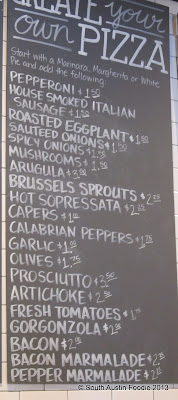 CREATE your
own PIZZA
Start with a Marinara, Margherita or White
Pie and add the following
PEPPERONI $1.50
HOUSE SMOKED ITALIAN
SAUSAGE $1.50
ROASTED EGGPLANT $1.50
SAUTEED ONIONS $1.50
SPICY ONIONS $1.50
MUSHROOMS $1.50
ARUGULA $2.00
BRUSSELS SPROUTS $2.25
HOT SOPRESSATA $2.25
CAPERS $1.00
CALABRIAN PEPPERS $1.75
GARLIC $1.00
OLIVES $1.75
PROSCIUTTO $3.50
ARTICHOKE $2.50
FRESH TOMATOES $1.75
GORGONZOLA $2.25
BACON $2.25
BACON MARMALADE $2.25
PEPPER MARMALADE $2.25
© South Austin Foodie 2013